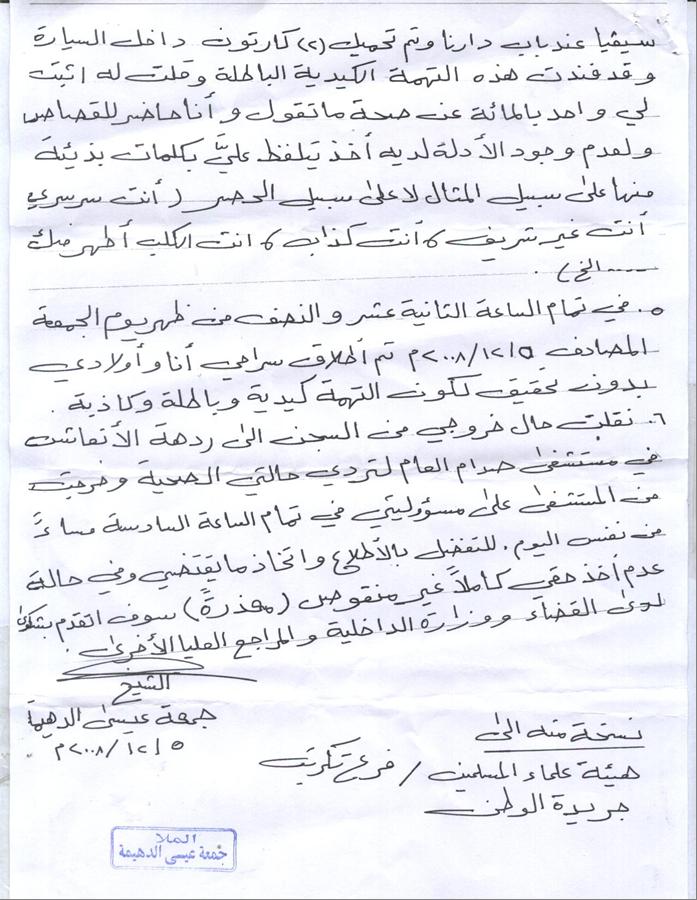 سيقيا عند باب دارنا وتم تحميل (٢) كارتون داخل السيارة
وقد فندت هذه التهمة الكيدية الباطلة وقلت له اثبت
لي واحد بالمائة عن صحة ما تقول و أنا حاضر للقصاص
ولعدم وجود الأدلة لديه أخذ يتلفظ عليَّ بكلمات بذيئة
منها على سبيل المثال لا على سبيل الحصر (أنت سرسري
أنت غير شريف ، أنت كذاب ، انت الكلب أطهر منك
---- الخ) .
٥. في تمام الساعة الثانية عشر والنصف من ظهر يوم الجمعة
المصادف ٥/١٢/٢٠٠٨م تم أطلاق سراحي أنا و أولادي
بدون تحقيق لكون التهمة كيدية وباطلة وكاذبة .
٦. نقلت حال خروجي من السجن الى ردهة الأنعاش
في مستشفى صدام العام لتردي حالتي الصحية وخرجت
من المستشفى على مسؤوليتي في تمام الساعة السادسة مساءً
من نفس اليوم . للتفضل بالأطلاع واتخاذ ما يقتضي وفي حالة
عدم اخذ حقي كاملاً غير منقوص (معذرةً) سوف اتقدم بشكوى
لدى القضاء ووزارة الداخلية والمراجع العليا الأخرى .
الشيخ
جمعة عيسى الدهيمة
٥/١٢/٢٠٠٨م
نسخة منه الى
هيئة علماء المسلمين / فرع تكريت
جريدة الوطن
الملا
جمعة عيسى الدهيمة